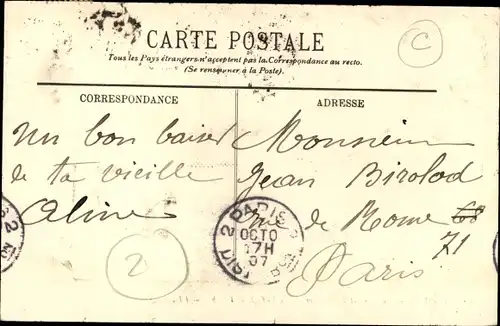 CARTE POSTALE
Tous les Pays étrangers n'acceptent pas la Correspondance au recto.
(Se renseigner à la Poste).
CORRESPONDANCE
ADRESSE
un bon baiser
de ta vieille
Aline
Monsieur
Jean
Rue de Rome 68
71
Paris
PARIS
OCTO
17H
07
C
2